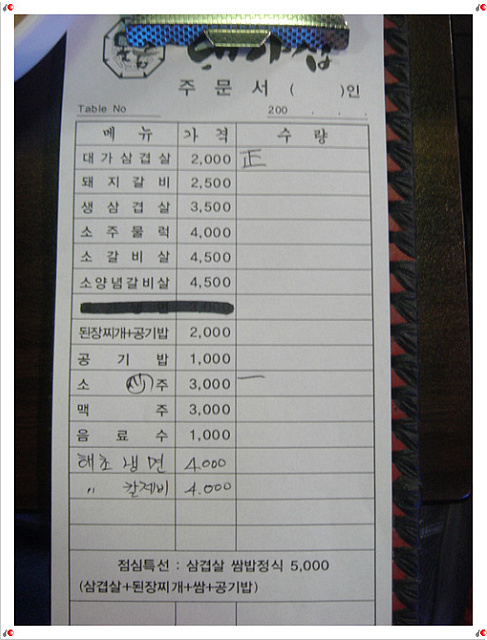 주 문 서 ( )인
Table No 200 . . .
메 뉴 가 격 수 량
대가삼겹살 2,000 正
돼 지 갈 비 2,500
생 삼 겹 살 3,500
소 주 물 럭 4,000
소 갈 비 살 4,500
소양념갈비살 4,500
된장찌개+공기밥 2,000
공 기 밥 1,000
소 주 3,000 一
맥 주 3,000
음 료 수 1,000
해초 냉면 4.000
〃 칼제비 4.000
점심특선 : 삼겹살 쌈밥정식 5,000
(삼겹살+된장찌개+쌈+공기밥)